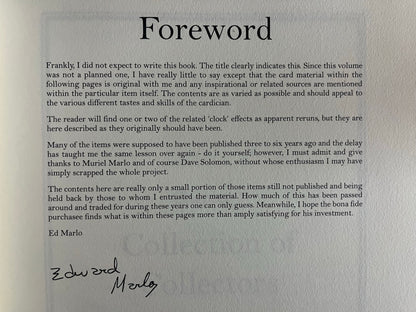 Foreword
Frankly, I did not expect to write this book. The title clearly indicates this. Since this volume
was not a planned one, I have really little to say except that the card material within the
following pages is original with me and any inspirational or related sources are mentioned
within the particular item itself. The contents are as varied as possible and should appeal to
the various different tastes and skills of the cardician.
The reader will find one or two of the related 'clock' effects as apparent reruns, but they are
here described as they originally should have been.
Many of the items were supposed to have been published three to six years ago and the delay
has taught me the same lesson over again - do it yourself; however, I must admit and give
thanks to Muriel Marlo and of course Dave Solomon, without whose enthusiasm I may have
simply scrapped the whole project.
The contents here are really only a small portion of those items still not published and being
held back by those to whom I entrusted the material. How much of this has been passed
around and traded for during these years one can only guess. Meanwhile, I hope the bona fide
purchasee finds what is within these pages more than amply satisfying for his investment.
Ed Marlo
Edward
Marlo